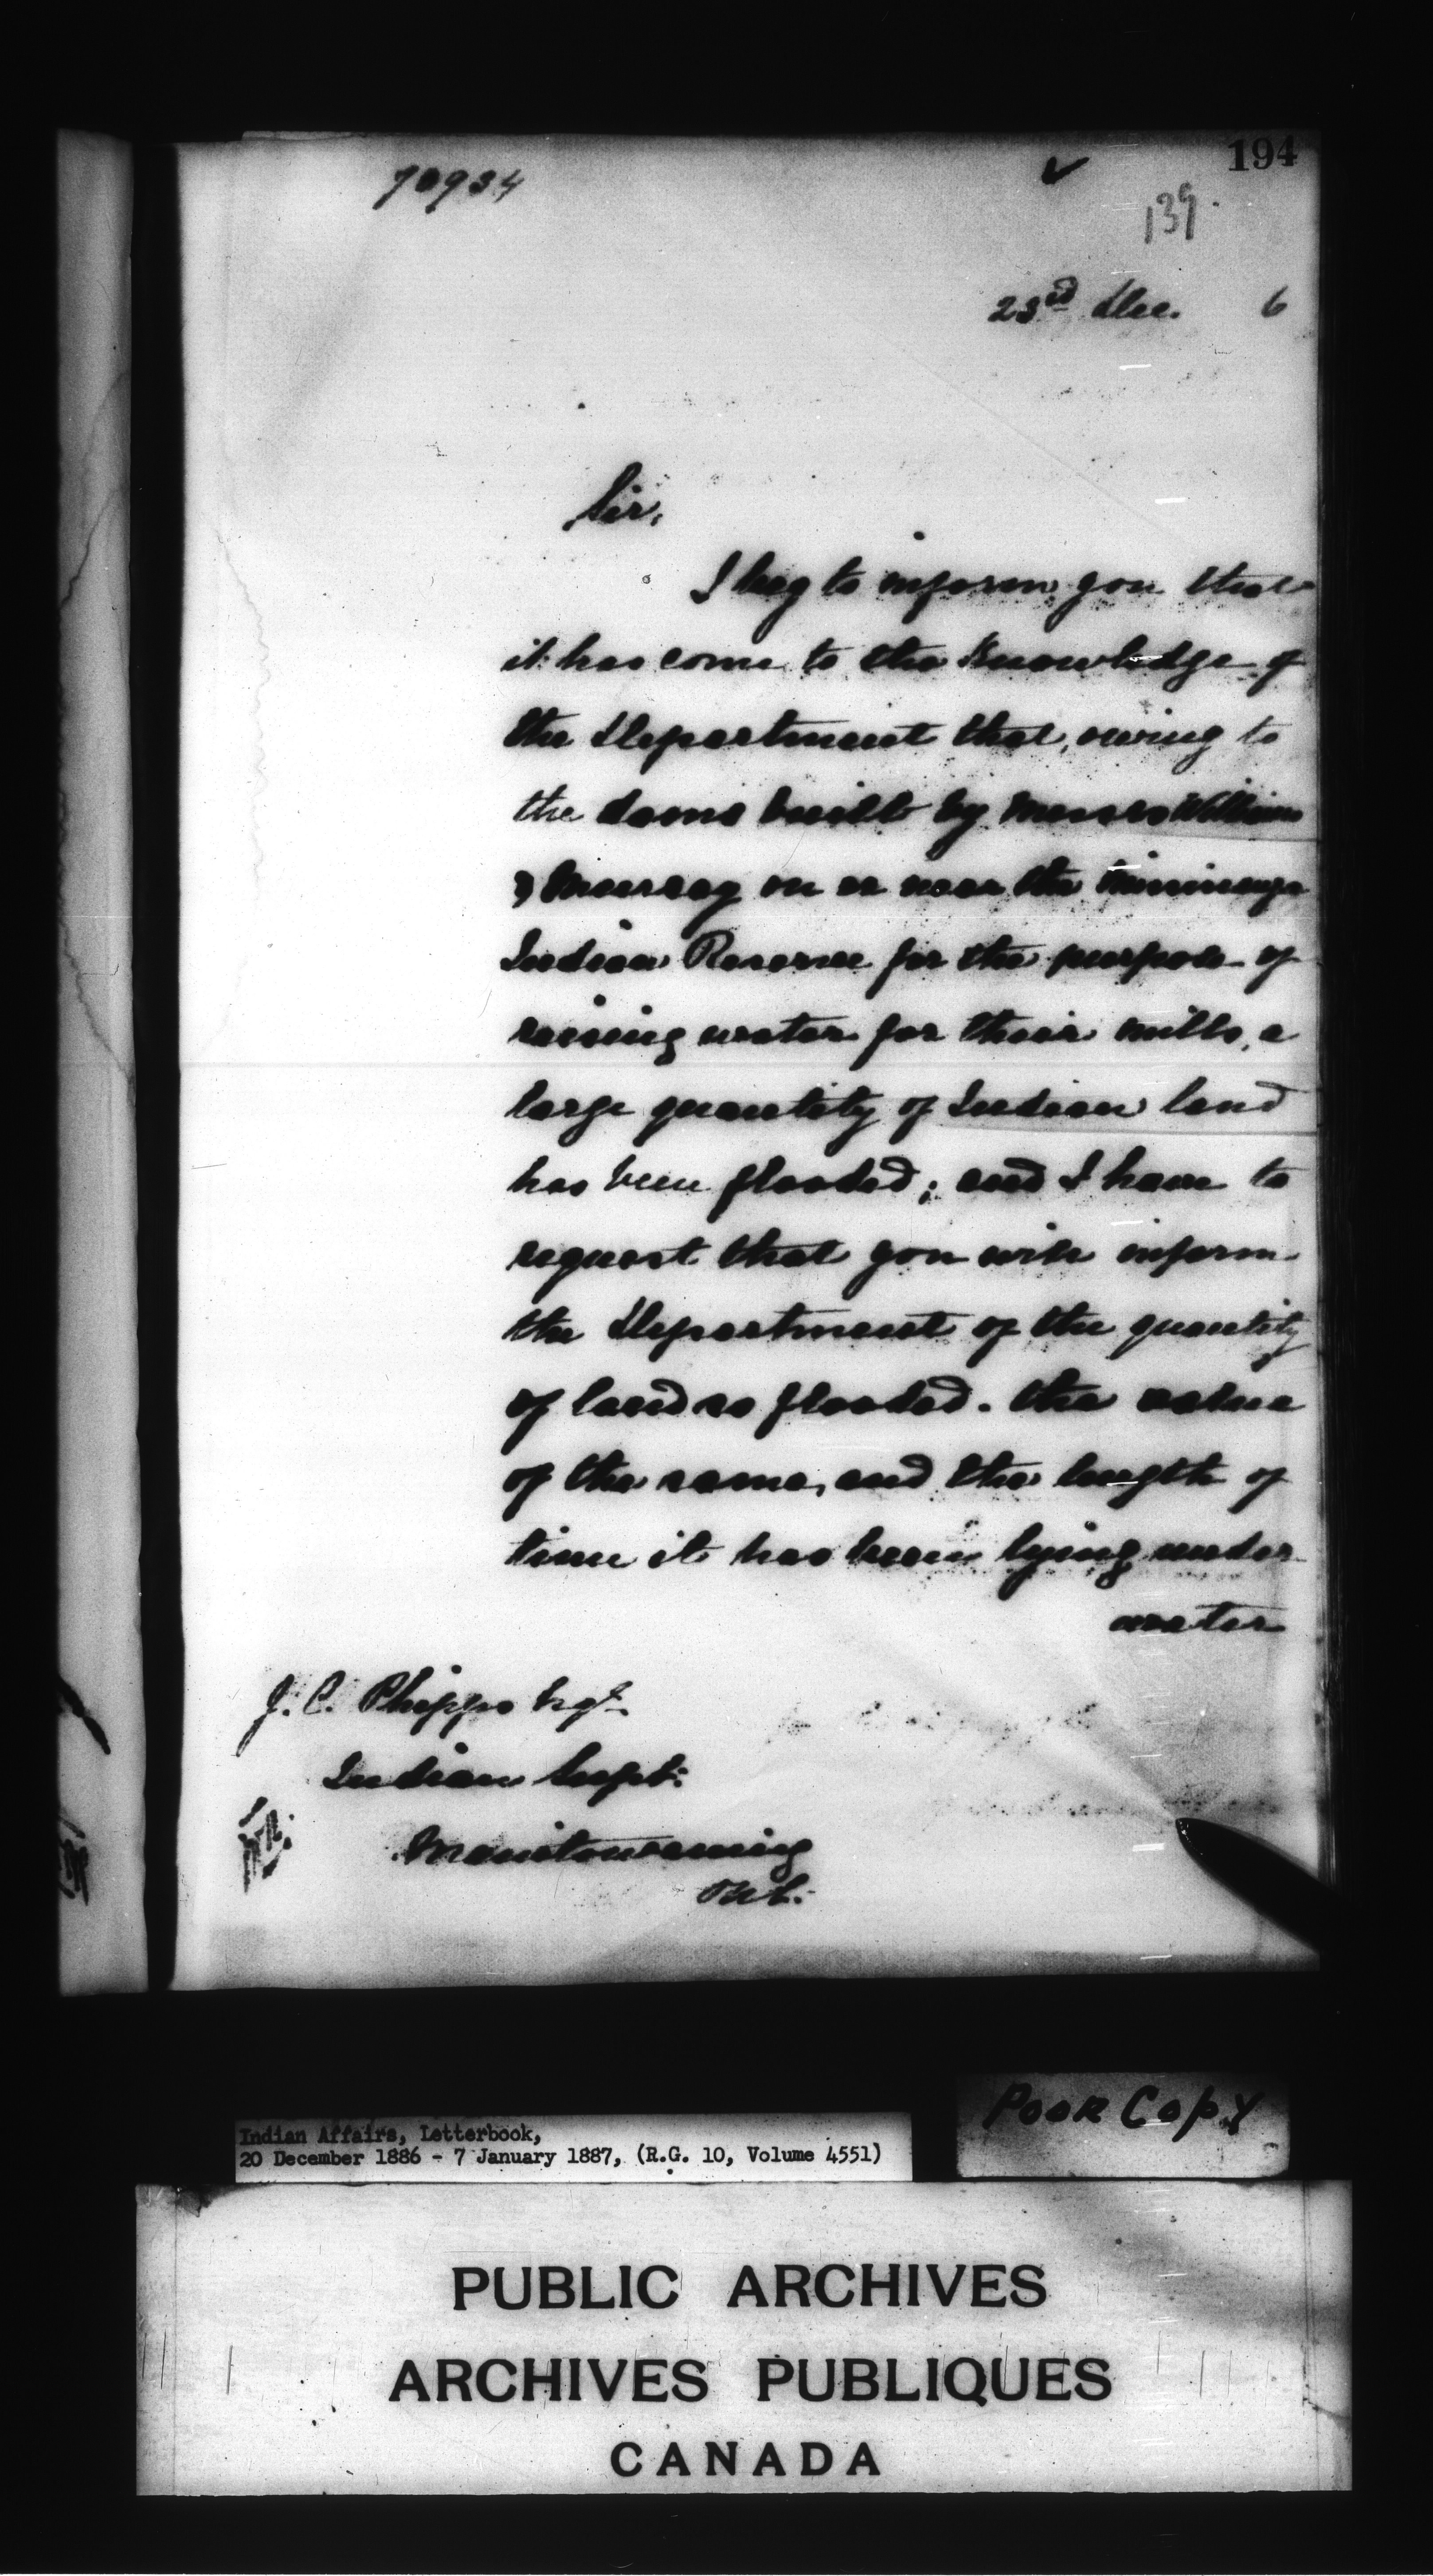 194
70934
139.
23rd Dec. 6
Sir,
I beg to inform you that
it has come to the knowledge of
the Department that, owing to
the dams built by Messrs Williams
& Murray on or near the
Indian Reserve for the purpose of
raising water for their mills, a
large quantity of Indian land
has been flooded; and I have to
request that you will inform
the Department of the quantity
of land so flooded. the value
of the same, and the length of
time it has been lying under
water
J. C. Phipps Esqr.
Indian Supt:
Manitowaning
Ont.
Poor Copy
Indian Affairs, Letterbook,
20 December 1886 - 7 January 1887, (R.G. 10, Volume 4551)
PUBLIC ARCHIVES
ARCHIVES PUBLIQUES
CANADA